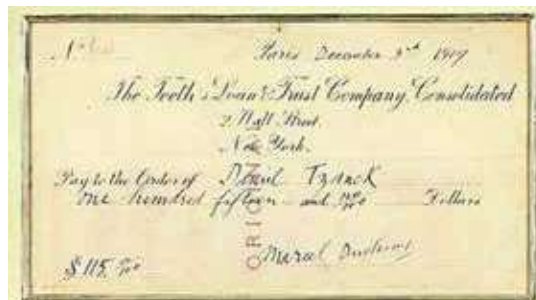 Nº
Paris December 3rd 1919
The Teeth's Loan & Trust Company, Consolidated
2 Wall Street.
New York.
Pay to the Order of Daniel Tzanck
one hundred fifteen and no/100 Dollars
ORIGINAL
$ 115. no/100 Marcel Duchamp